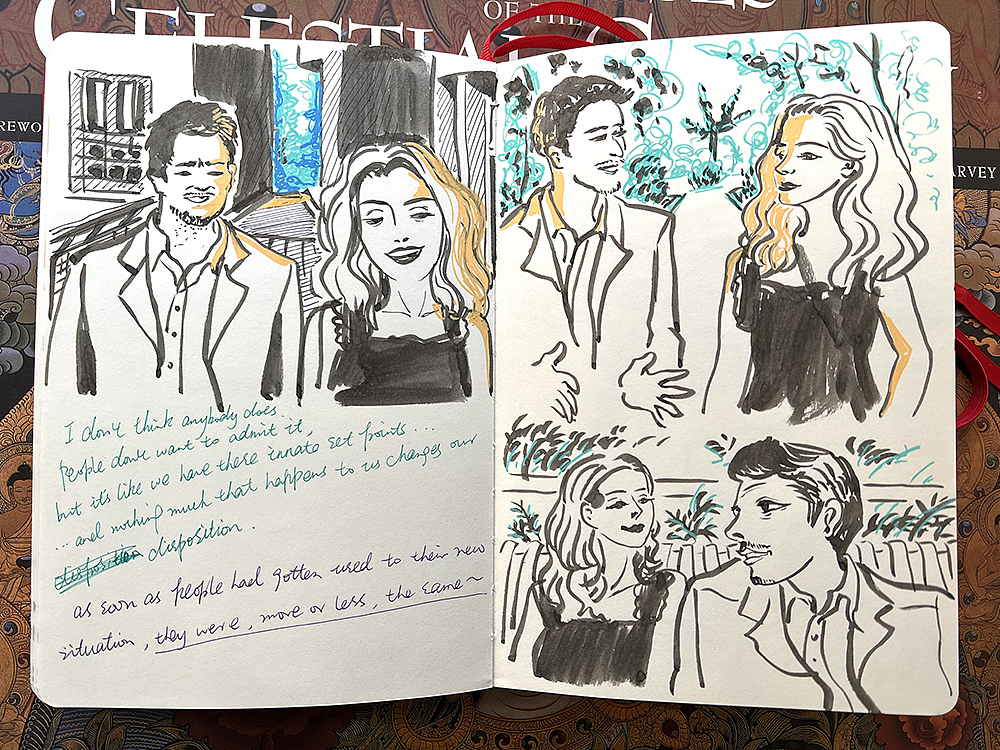 OF THE
CELESTIAL G
REWO
ARVEY
I don't think anybody does.
people don't want to admit it,
but it's like we have these innate set points...
...and nothing much that happens to us changes our
disposition disposition.
as soon as people had gotten used to their new
situation, they were, more or less, the same~